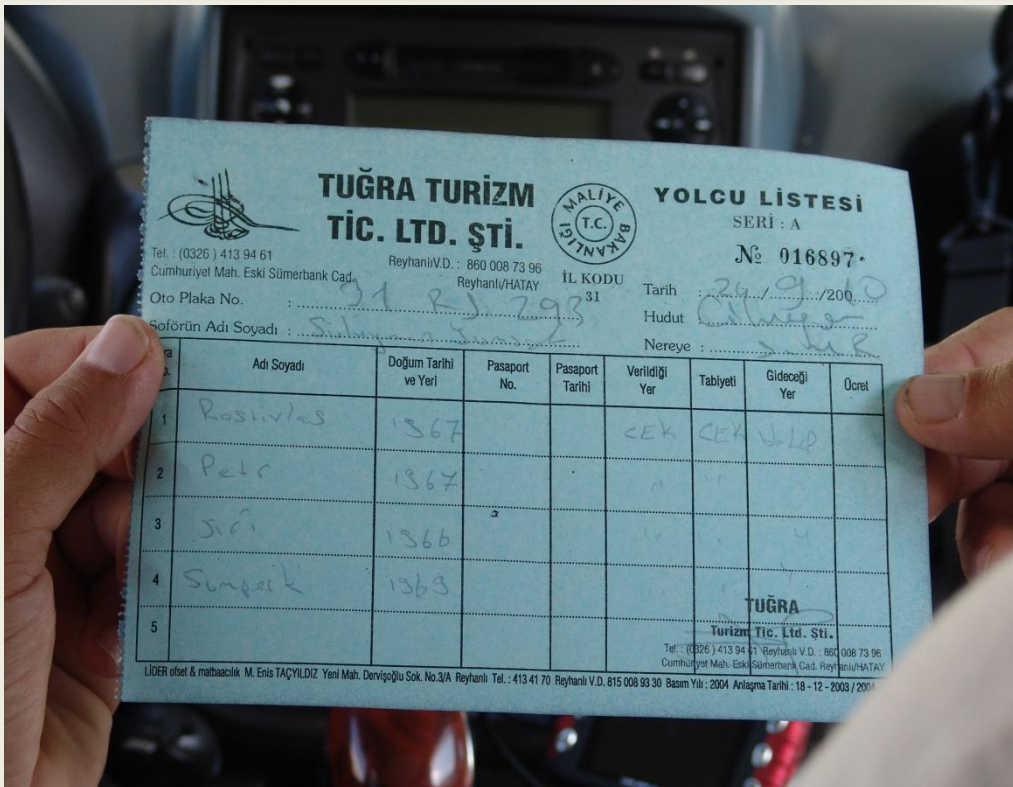 TUĞRA TURİZM
TİC. LTD. ŞTİ.
MALİYE BAKANLIĞI
T.C.
YOLCU LİSTESİ
SERİ : A
№ 016897
Tel. : (0326 ) 413 94 61
Cumhuriyet Mah. Eski Sümerbank Cad.
Reyhanlı V.D. : 860 008 73 96
Reyhanlı/HATAY
İL KODU
31
Tarih : 24 / 9 /200
Oto Plaka No. :
Hudut
Soförün Adı Soyadı :
Nereye :
Adı Soyadı Doğum Tarihi ve Yeri Pasaport No. Pasaport Tarihi Verildiği Yer Tabiyeti Gideceği Yer Ücret
1 Rostivlas 1967 CEK CEK
2 Petr 1967
3 Jiří 1966
4 Sumperk 1969
5
TUĞRA
Turizm Tic. Ltd. Şti.
Tel : (0326 ) 413 94 61 Reyhanlı V.D. : 860 008 73 96
Cumhuriyet Mah. Eski Sümerbank Cad. Reyhanlı/HATAY
LİDER ofset & matbaacılık M. Enis TAÇYILDIZ Yeni Mah. Dervişoğlu Sok. No.3/A Reyhanlı Tel. : 413 41 70 Reyhanlı V.D. 815 008 93 30 Basım Yılı : 2004 Anlaşma Tarihi : 18 - 12 - 2003 / 2004